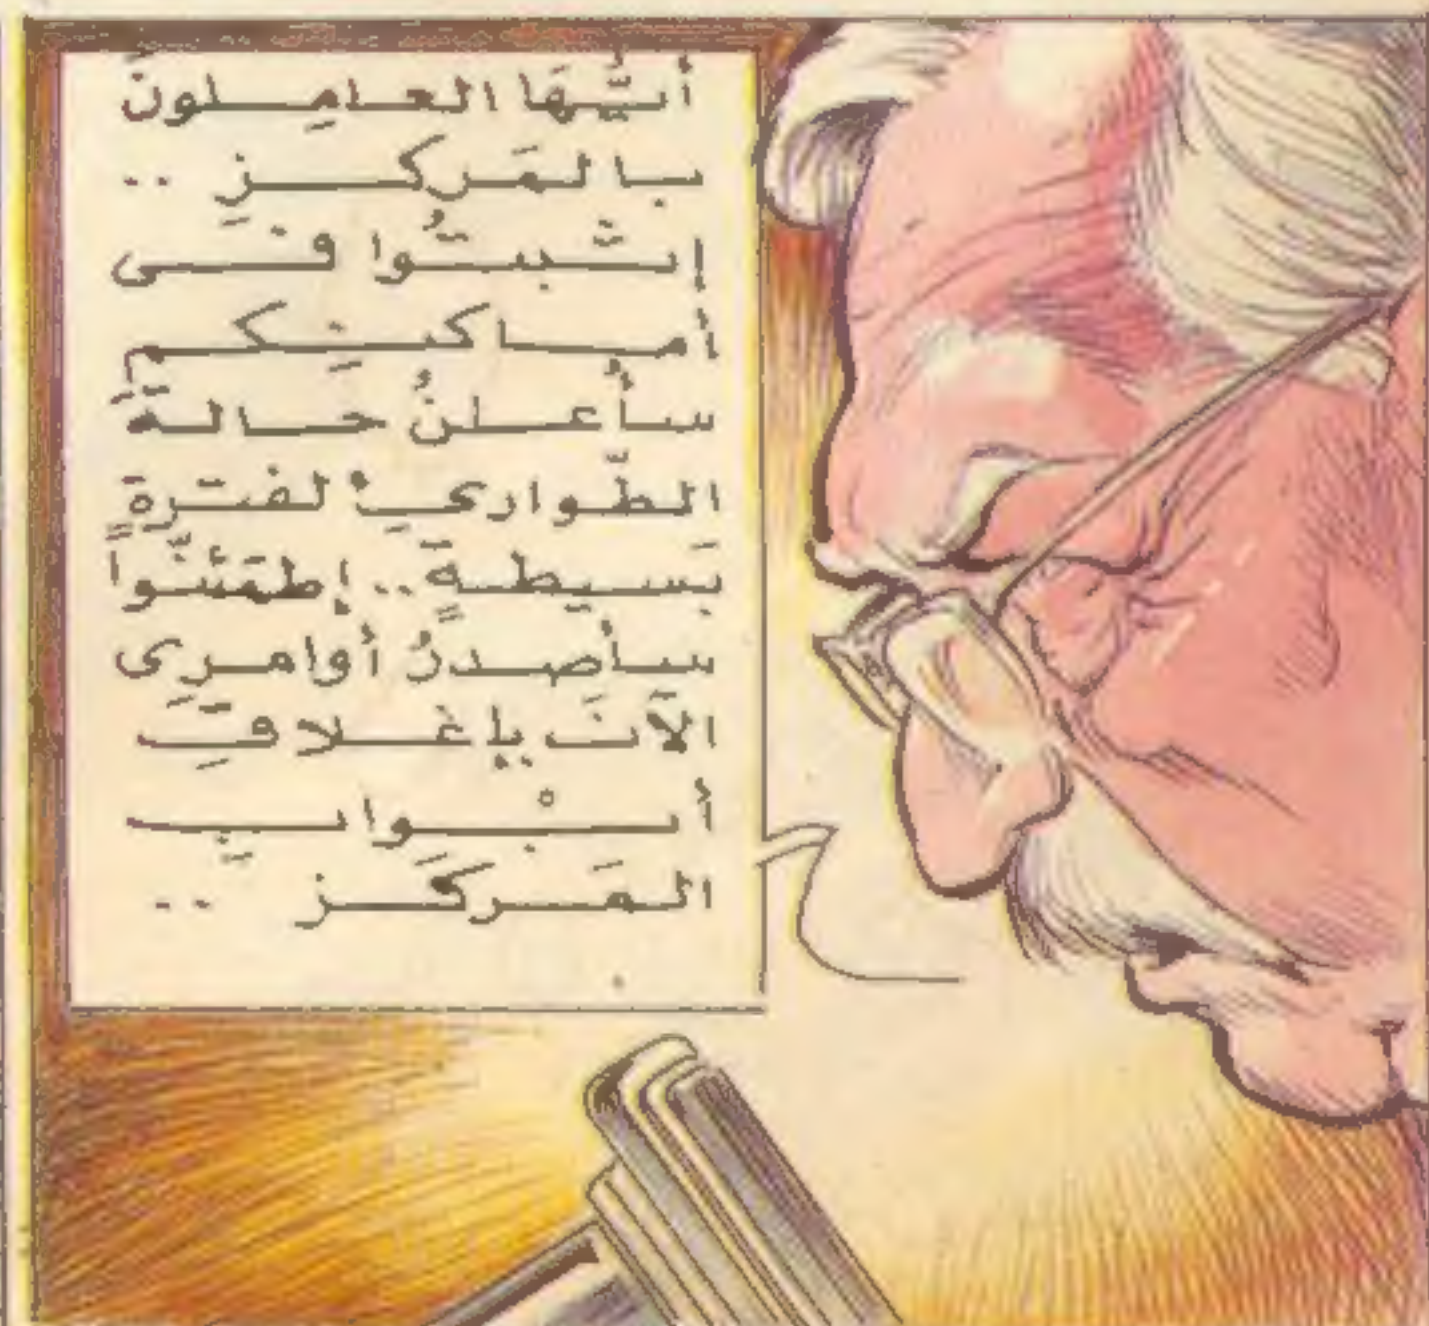 أيُّهَا العـامِـلونَ
بالمَركـزِ ..
إثبتُوا فى
أمـاكنِكم
سأُعـلنُ حـالةَ
الطّوارئِ لفترةٍ
بَسيطـةٍ .. إطمَئنّوا
سأصدرُ أوامرِى
الآنَ بإغـلاقِ
أبْـوابِ
المَـركَـز ..